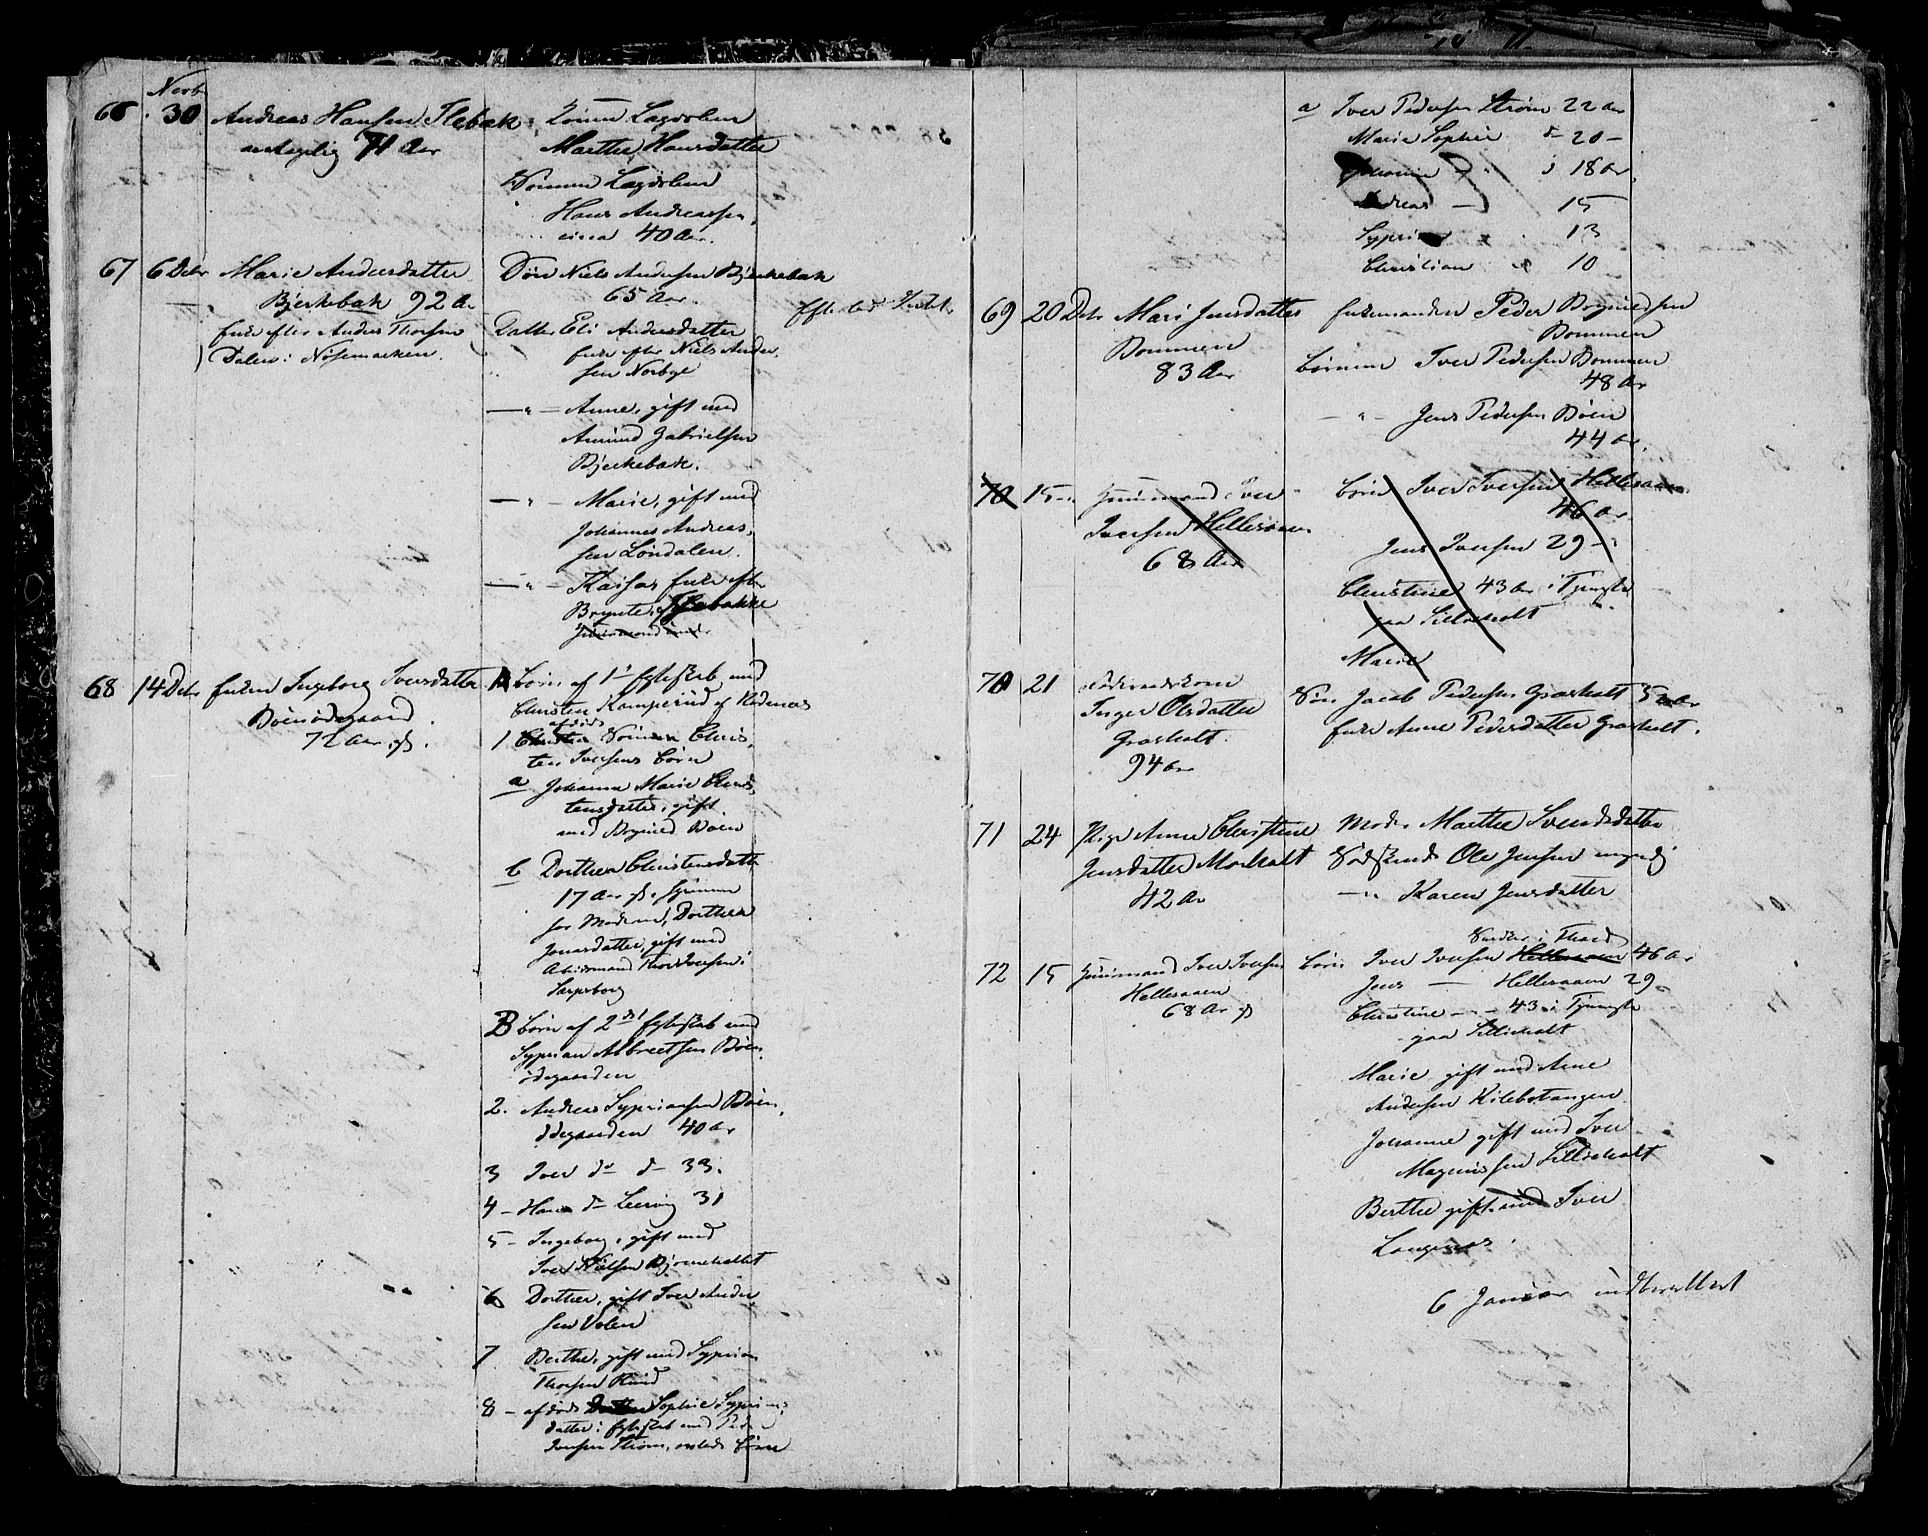 Novb
66 30 Andreas Hansen Flebak
71 Aar
Konen
Marthe Hansdatter
Sønnen
Hans Andreassen
circa 40 Aar.
67 6 Decbr Marie Andersdatter
Bjerkebak 92 A.
Enke efter Anders Thorsen
Dalen i Nössemarken.
Søn Niels Andersen Bjerkebak
65 Aar.
Datter Eli Andersdatter
Enke efter Niels Ander
sen Norbye
— " — Anne, gift med
Amund Gabrielsen
Bjerkebak.
— " — Marie, gift med
Johannes Andreas,
sen Löndalen.
— " — Kaisa, Enke efter
Brynte
Huusmand
68 14 Decbr Enken Ingeborg Iversdatter
Böenödegaard
72 Aar gl.
A Børn af 1ste Egteskab med
Christen Kamperud af Rödenæs
afdöde
1 Sönnen Chris,
ten Iversens Børn
a Johanne Marie Chris
tensdatter, gift
med Böen
b Dorthea Christensdatter
17 Aar gl. hjemme
hos Moderen, Dorthea
Jonasdatter, gift med
Arbeidsmand Thor Iversen i
Sarpsborg
B Børn af 2det Egteskab med
Syprian Albretsen Böen,
ödegaarden
2. AndreasYpriansen Böen,
ödegaarden 40 Aar
3 Iver do do 33.
4 — Hans do Leering 31
5 — Ingeborg, gift med
Iver Nielsen Bjørneholtet
6 Dorthea, gift Iver Ander
sen Volen
7 Berthe, gift med Syprian
Thorsen Ruud
8 — afdöde Datter Sophie Syprians
datter i Egteskab med Peder
Iversen Ström, Børn
a Iver Pedersen Ström 22 Aar
Marie Sophie do 20 —
Johanne — " 18 Aar
Andreas — 15
Syprian 13
Christian 10
69 20 Decbr Mari Jensdatter
Bommen
83 Aar
Enkemanden Peder Brynildsen
Bommen
Börnene Iver Pedersen Bommen
48 Aar
— " — Jens Pedersen Böen
44 Aar
70 15 — Huusmand Iver
Iversen Hellesaaen
68 Aar
Børn Iver Iversen Hellesaaen
46 Aar
Jens Iversen 29 —
Christine 43 Aar i Tjeneste
paa Lilleholt
Marie
70 21
Inger Olsdatter
Grasholt.
94 Aar
Søn Jacob Pedersen Grasholt
Enke Anne Pedersdatter Grasholt.
71 24 Pige Anne Christine
Jensdatter Morholt
42 Aar
Moder Marthe Svendsdatter
Södskende Ole Jensen myndig
— " Karen Jensdatter
72 15 Huusmand Iver Iversen
Hellesaaen
68 Aar gl
Snedker i
Børn Iver Iversen Hellesaaen 46 Aar
Jens — Hellesaaen 29
Christine — — 43 i Tjeneste
paa Lilleholt
Marie gift med Arne
Andersen Kilebotangen
Johanne gift med Iver
Magnussen Lilleholt
Berthe gift med Iver
Langenæs.
6 Januar indberettet